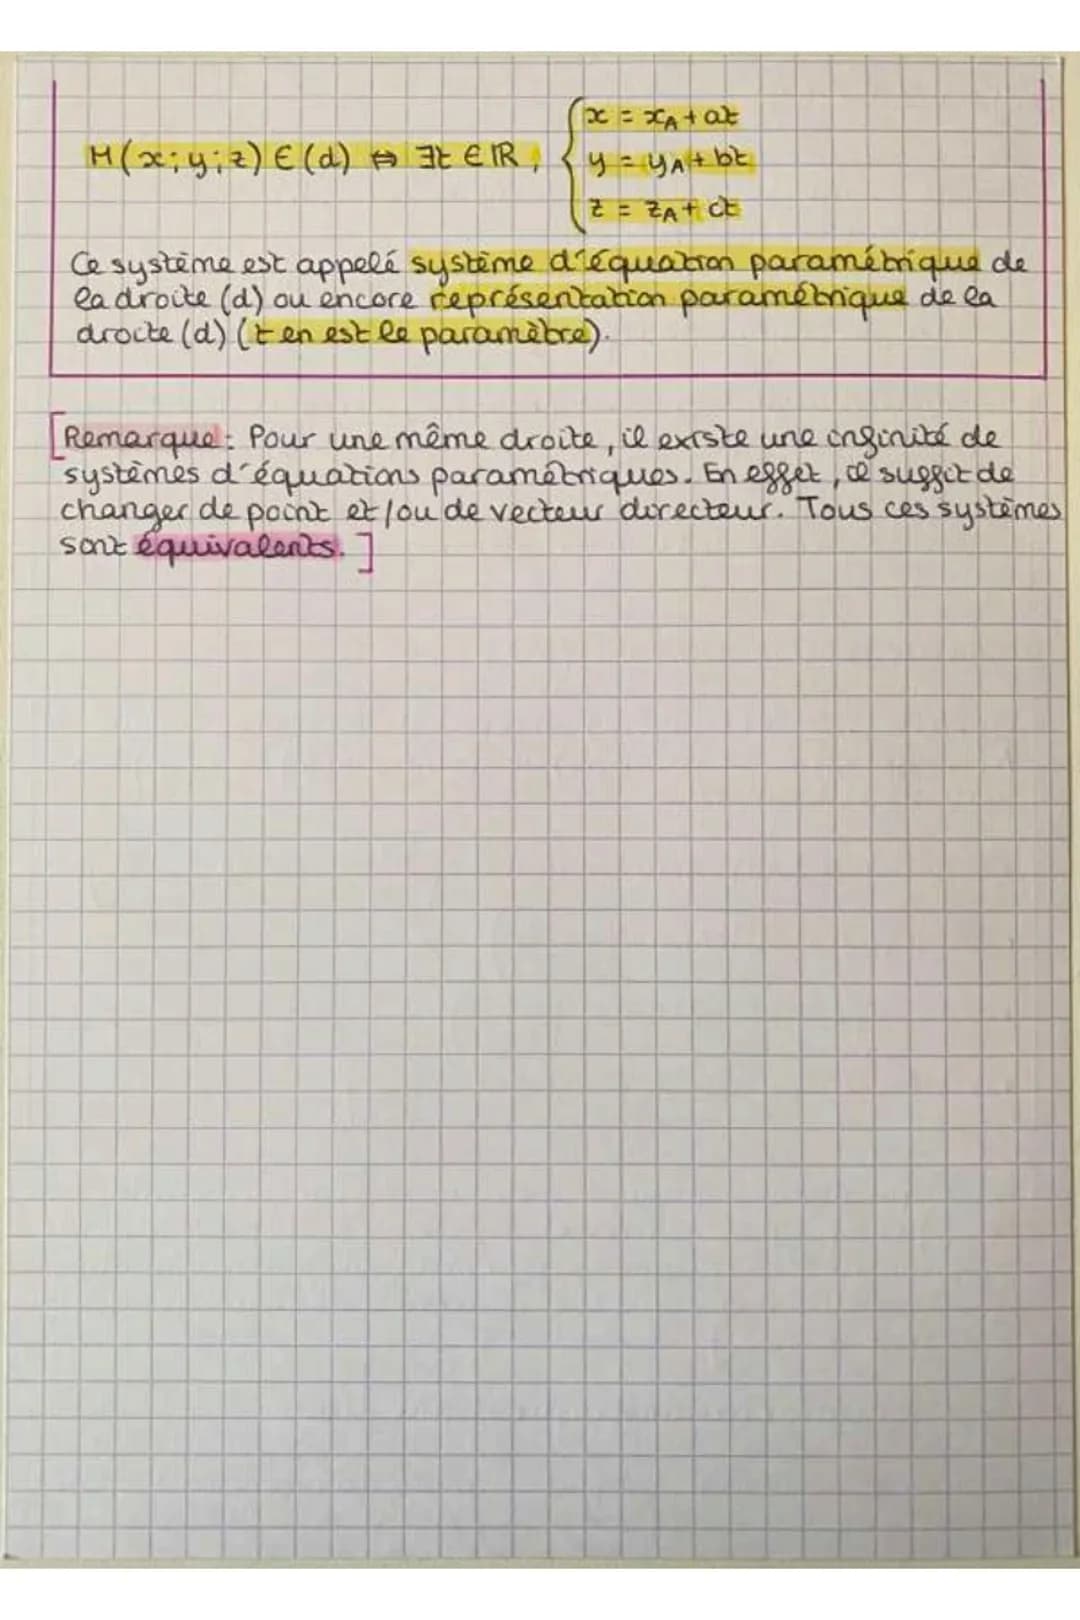 M(x;y;z) ∈ (d) ⇔ ∃t ∈ ℝ, { x = x_A + at
y = y_A + bt
z = z_A + ct
Ce système est appelé système d'équation paramétrique de
la droite (d) ou encore représentation paramétrique de la
droite (d) (t en est le paramètre).
[Remarque : Pour une même droite, il existe une infinité de
systèmes d'équations paramétriques. En effet, il suffit de
changer de point et/ou de vecteur directeur. Tous ces systèmes
sont équivalents.]